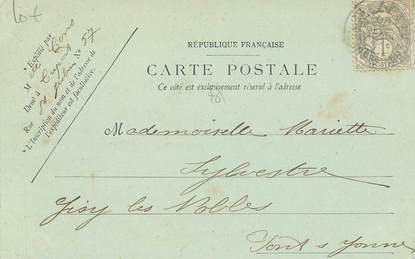 Lot
RÉPUBLIQUE FRANÇAISE
CARTE POSTALE
Ce côté est exclusivement réservé à l'adresse
* Expédié par
M
Demt à
Rue Nº 57
* L'Inscription du nom et de l'adresse de
l'expéditeur est facultative.
Mademoiselle Mariette
Sylvestre
Gisy les Nobles
Pont s Yonne